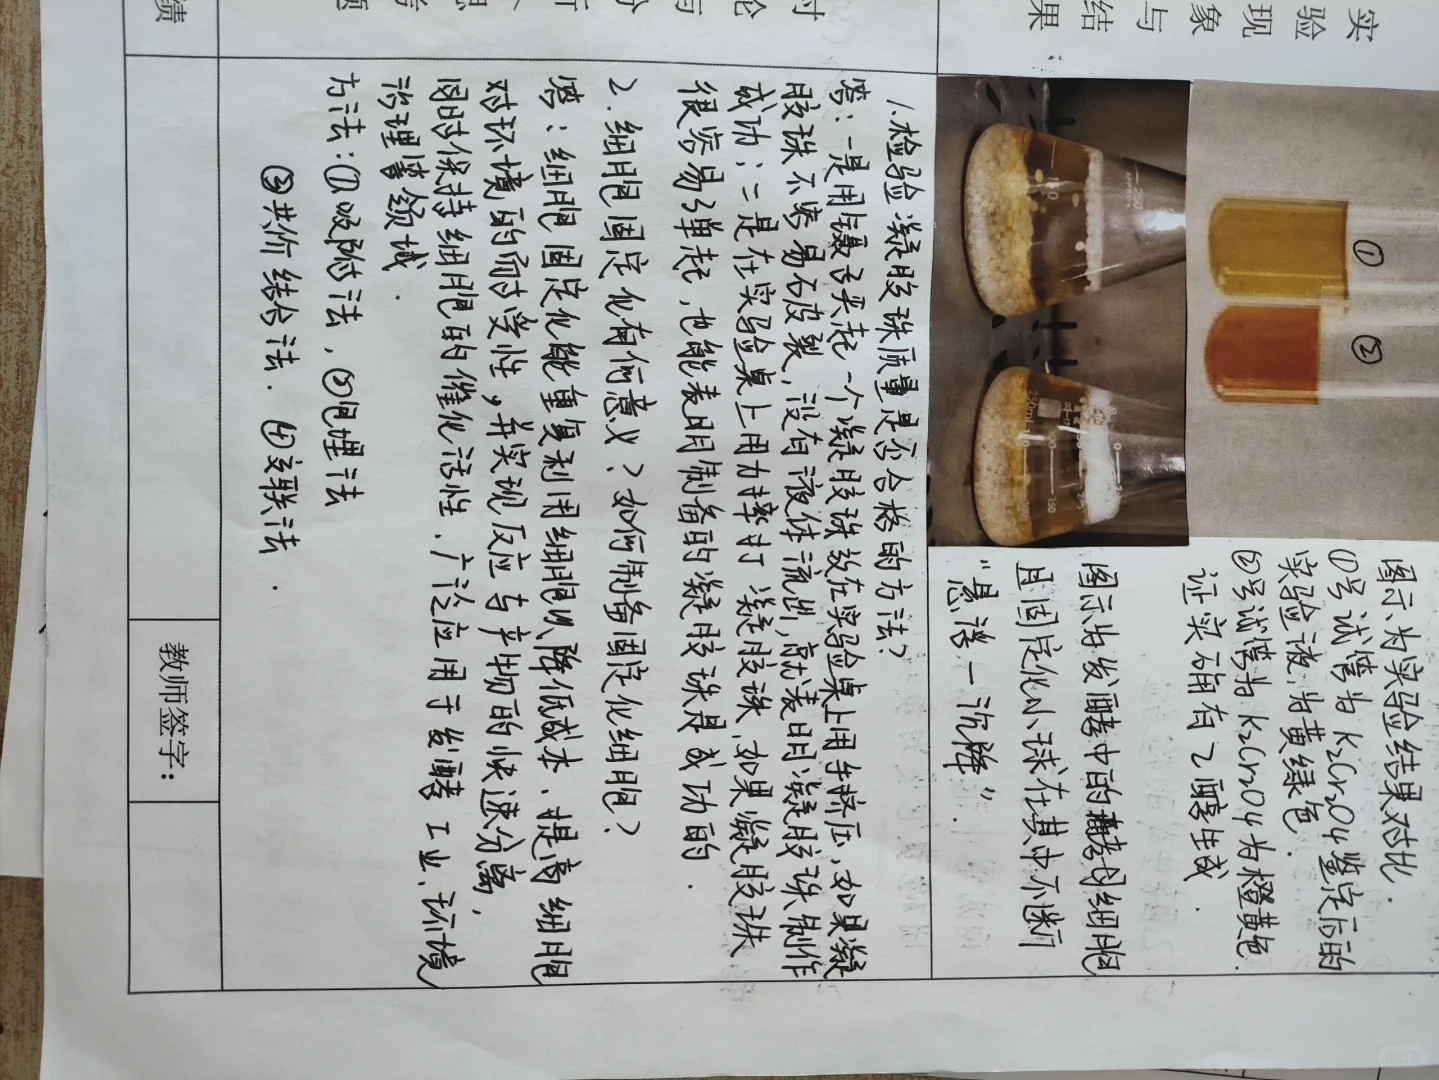 实验现象与结果：
①
②
图示为实验结果对比.
①号试管为K₂Cr₂O4鉴定后的
实验液,为黄绿色.
②号试管为K₂Cr₂O4为橙黄色.
证实确有乙醇生成.
图示为发酵中的酵母细胞
且固定化小球在其中不断
"悬浮—沉降".
1.检验凝胶珠质量是否合格的方法?
答:一是用镊子夹起一个凝胶珠放在实验桌上用手挤压,如果凝
胶珠不容易破裂,没有液体流出,就表明凝胶珠制作
成功;二是在实验桌上用力摔打凝胶珠,如果凝胶珠
很容易弹起,也能表明制备的凝胶珠是成功的.
2.细胞固定化有何意义?如何制备固定化细胞?
答:细胞固定化能重复利用细胞以降低成本.提高细胞
对环境的耐受性,并实现反应与产物的快速分离,
同时保持细胞的催化活性.广泛应用于发酵工业、环境
治理等领域.
方法:①吸附法,②包埋法
③共价结合法.④交联法.
绩
教师签字：